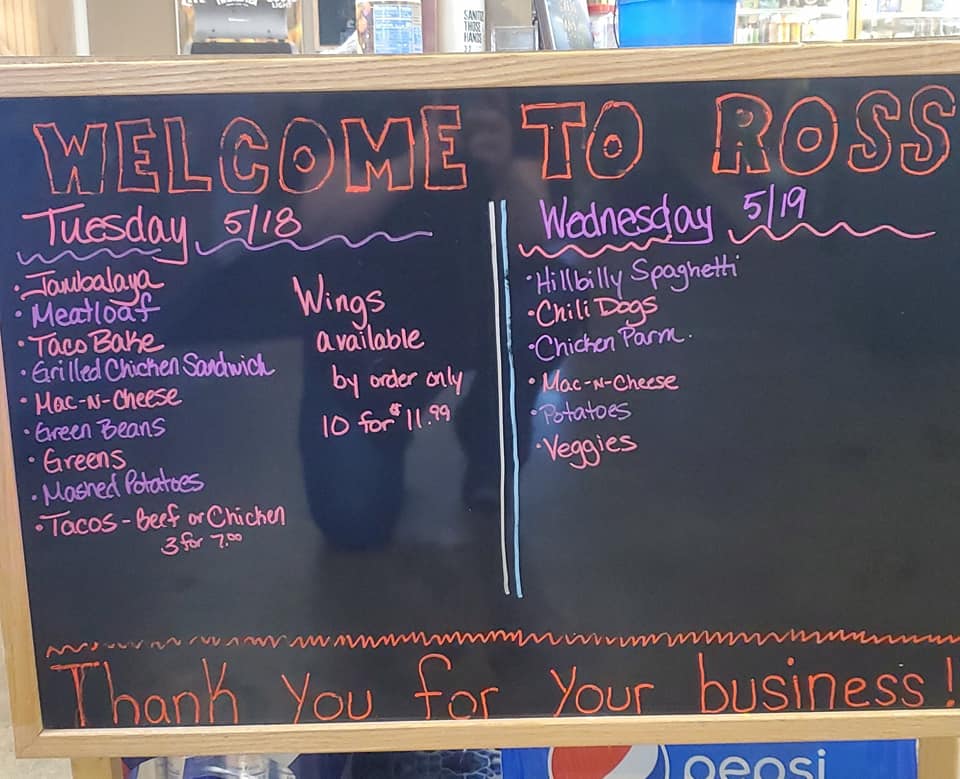 SANITIZE
THOSE
HANDS
WELCOME TO ROSS
Tuesday 5/18
• Jambalaya
• Meatloaf
• Taco Bake
• Grilled Chicken Sandwich
• Mac-N-Cheese
• Green Beans
• Greens
• Mashed Potatoes
• Tacos - Beef or Chicken
3 for 7.00
Wings
available
by order only
10 for $11.99
Wednesday 5/19
• Hillbilly Spaghetti
• Chili Dogs
• Chicken Parm.
• Mac-N-Cheese
• Potatoes
• Veggies
Thank You for Your business!
pepsi